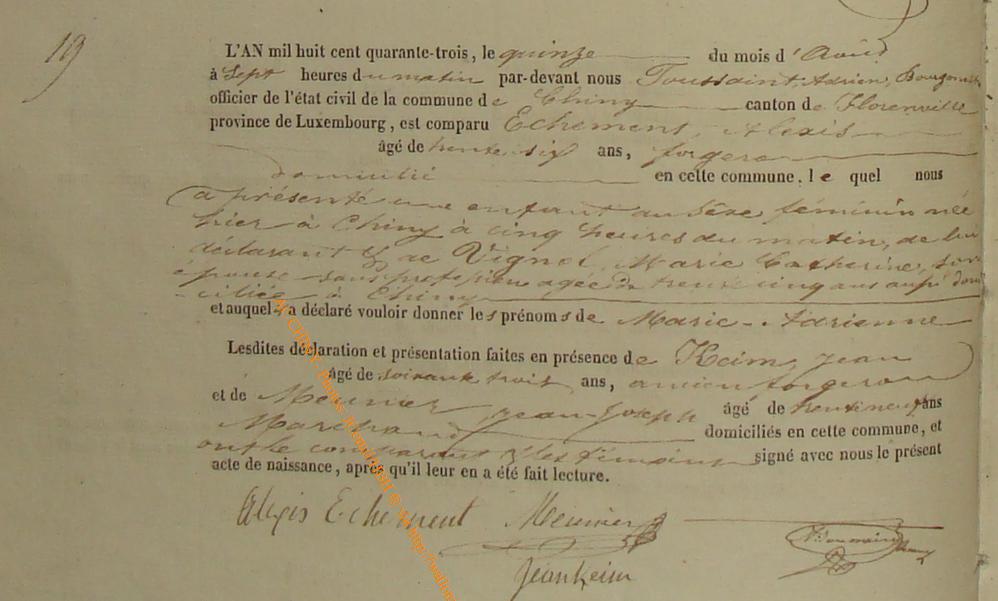 19
L'AN mil huit cent quarante-trois, le quinze du mois d'Août
à Sept heures du matin par-devant nous Toussaint, Adrien,
officier de l'état civil de la commune de Chiny canton de Florenville
province de Luxembourg, est comparu Echement, Alexis
âgé de trente six ans, forgeron
domicilié en cette commune, le quel nous
a présenté une enfant du sèxe féminin née
hier à Chiny à cinq heures du matin, de lui
déclarant & de Vignol, Marie Catherine, son
épouse sans profession agée de trente cinq ans aussi domi
-ciliée à Chiny
et auquel a déclaré vouloir donner les prénoms de Marie-Adrienne
Lesdites déclaration et présentation faites en présence de Keim, Jean
âgé de soixante trois ans, ancien forgeron
et de Meunier Jean-Joseph âgé de trentineuf ans
Marchand domiciliés en cette commune, et
ont le comparant & les témoins signé avec nous le présent
acte de naissance, après qu'il leur en a été fait lecture.
Alexis Echement Meunier
Jean Keim